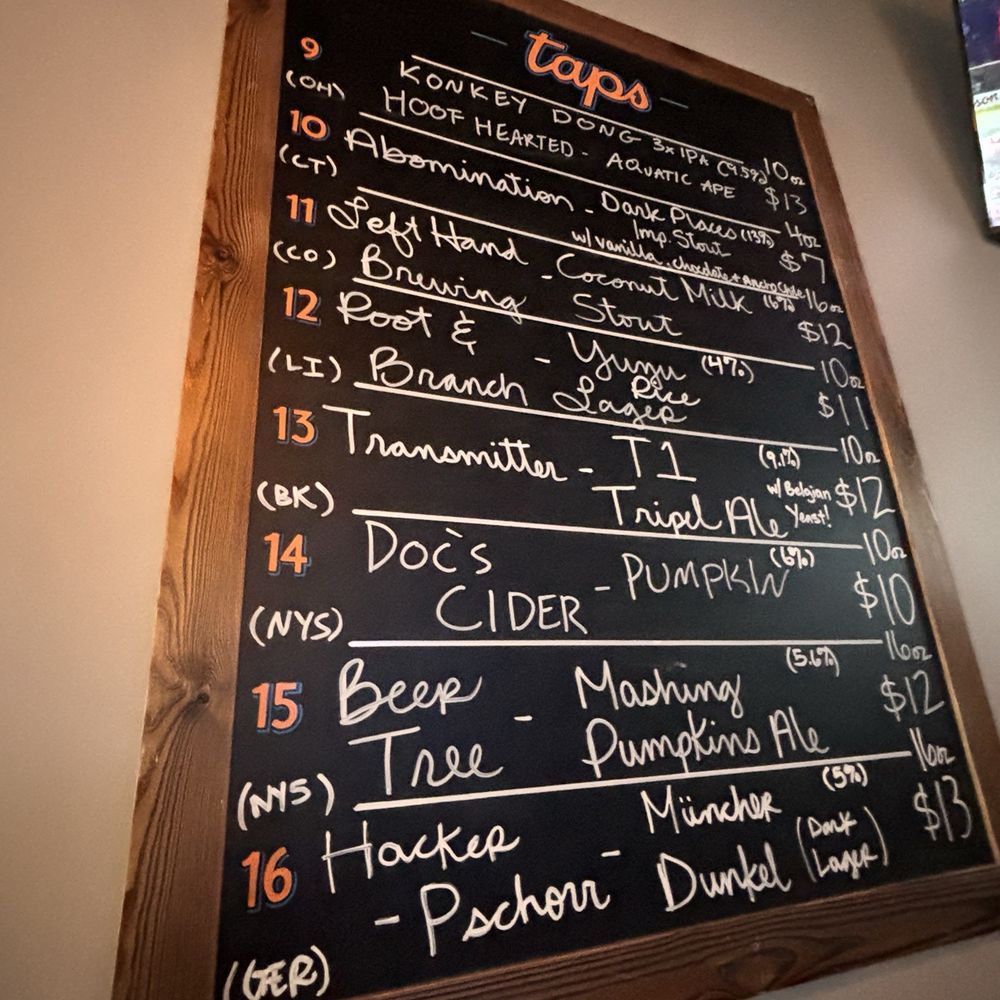 taps
9 KONKEY DONG 3x IPA (9.5%) 10oz
(OH) HOOF HEARTED - AQUATIC APE $13
10 Abomination - Dark Places (13%) 4oz
(CT) Imp. Stout $7
w/ vanilla, chocolate + Ancho Chile
11 Left Hand - Coconut Milk (6%) 16oz
(CO) Brewing Stout $12
12 Root & - Yuzu (4%) 10oz
(LI) Branch Rice Lager $11
13 Transmitter - T1 (9.1%) 10oz
(BK) Tripel Ale w/ Belgian Yeast! $12
14 Doc's - PUMPKIN (6%) 10oz
(NYS) CIDER $10
15 Beer - Mashing (5.6%) 16oz
(NYS) Tree Pumpkins Ale $12
16 Hacker - Müncher (5%) 16oz
- Pschorr Dunkel (Dark Lager) $13
(GER)